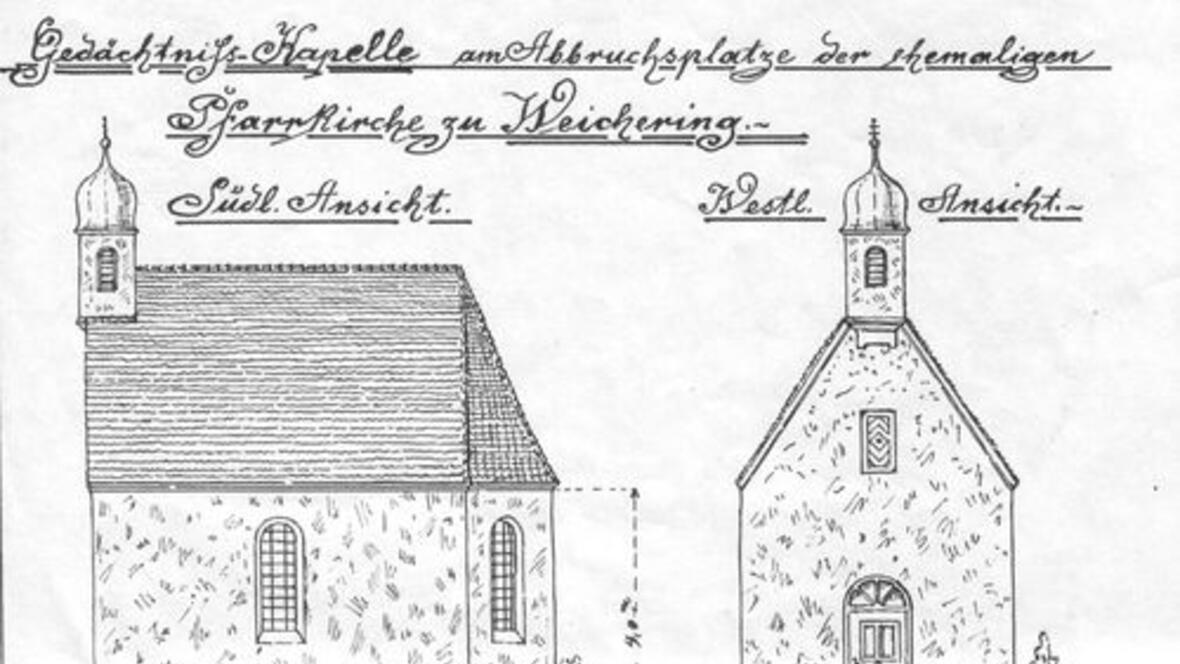 Gedächtniſs-Kapelle am Abbruchsplatze der ehemaligen
Pfarrkirche zu Weichering.~
Südl. Ansicht.
Westl. Ansicht.~